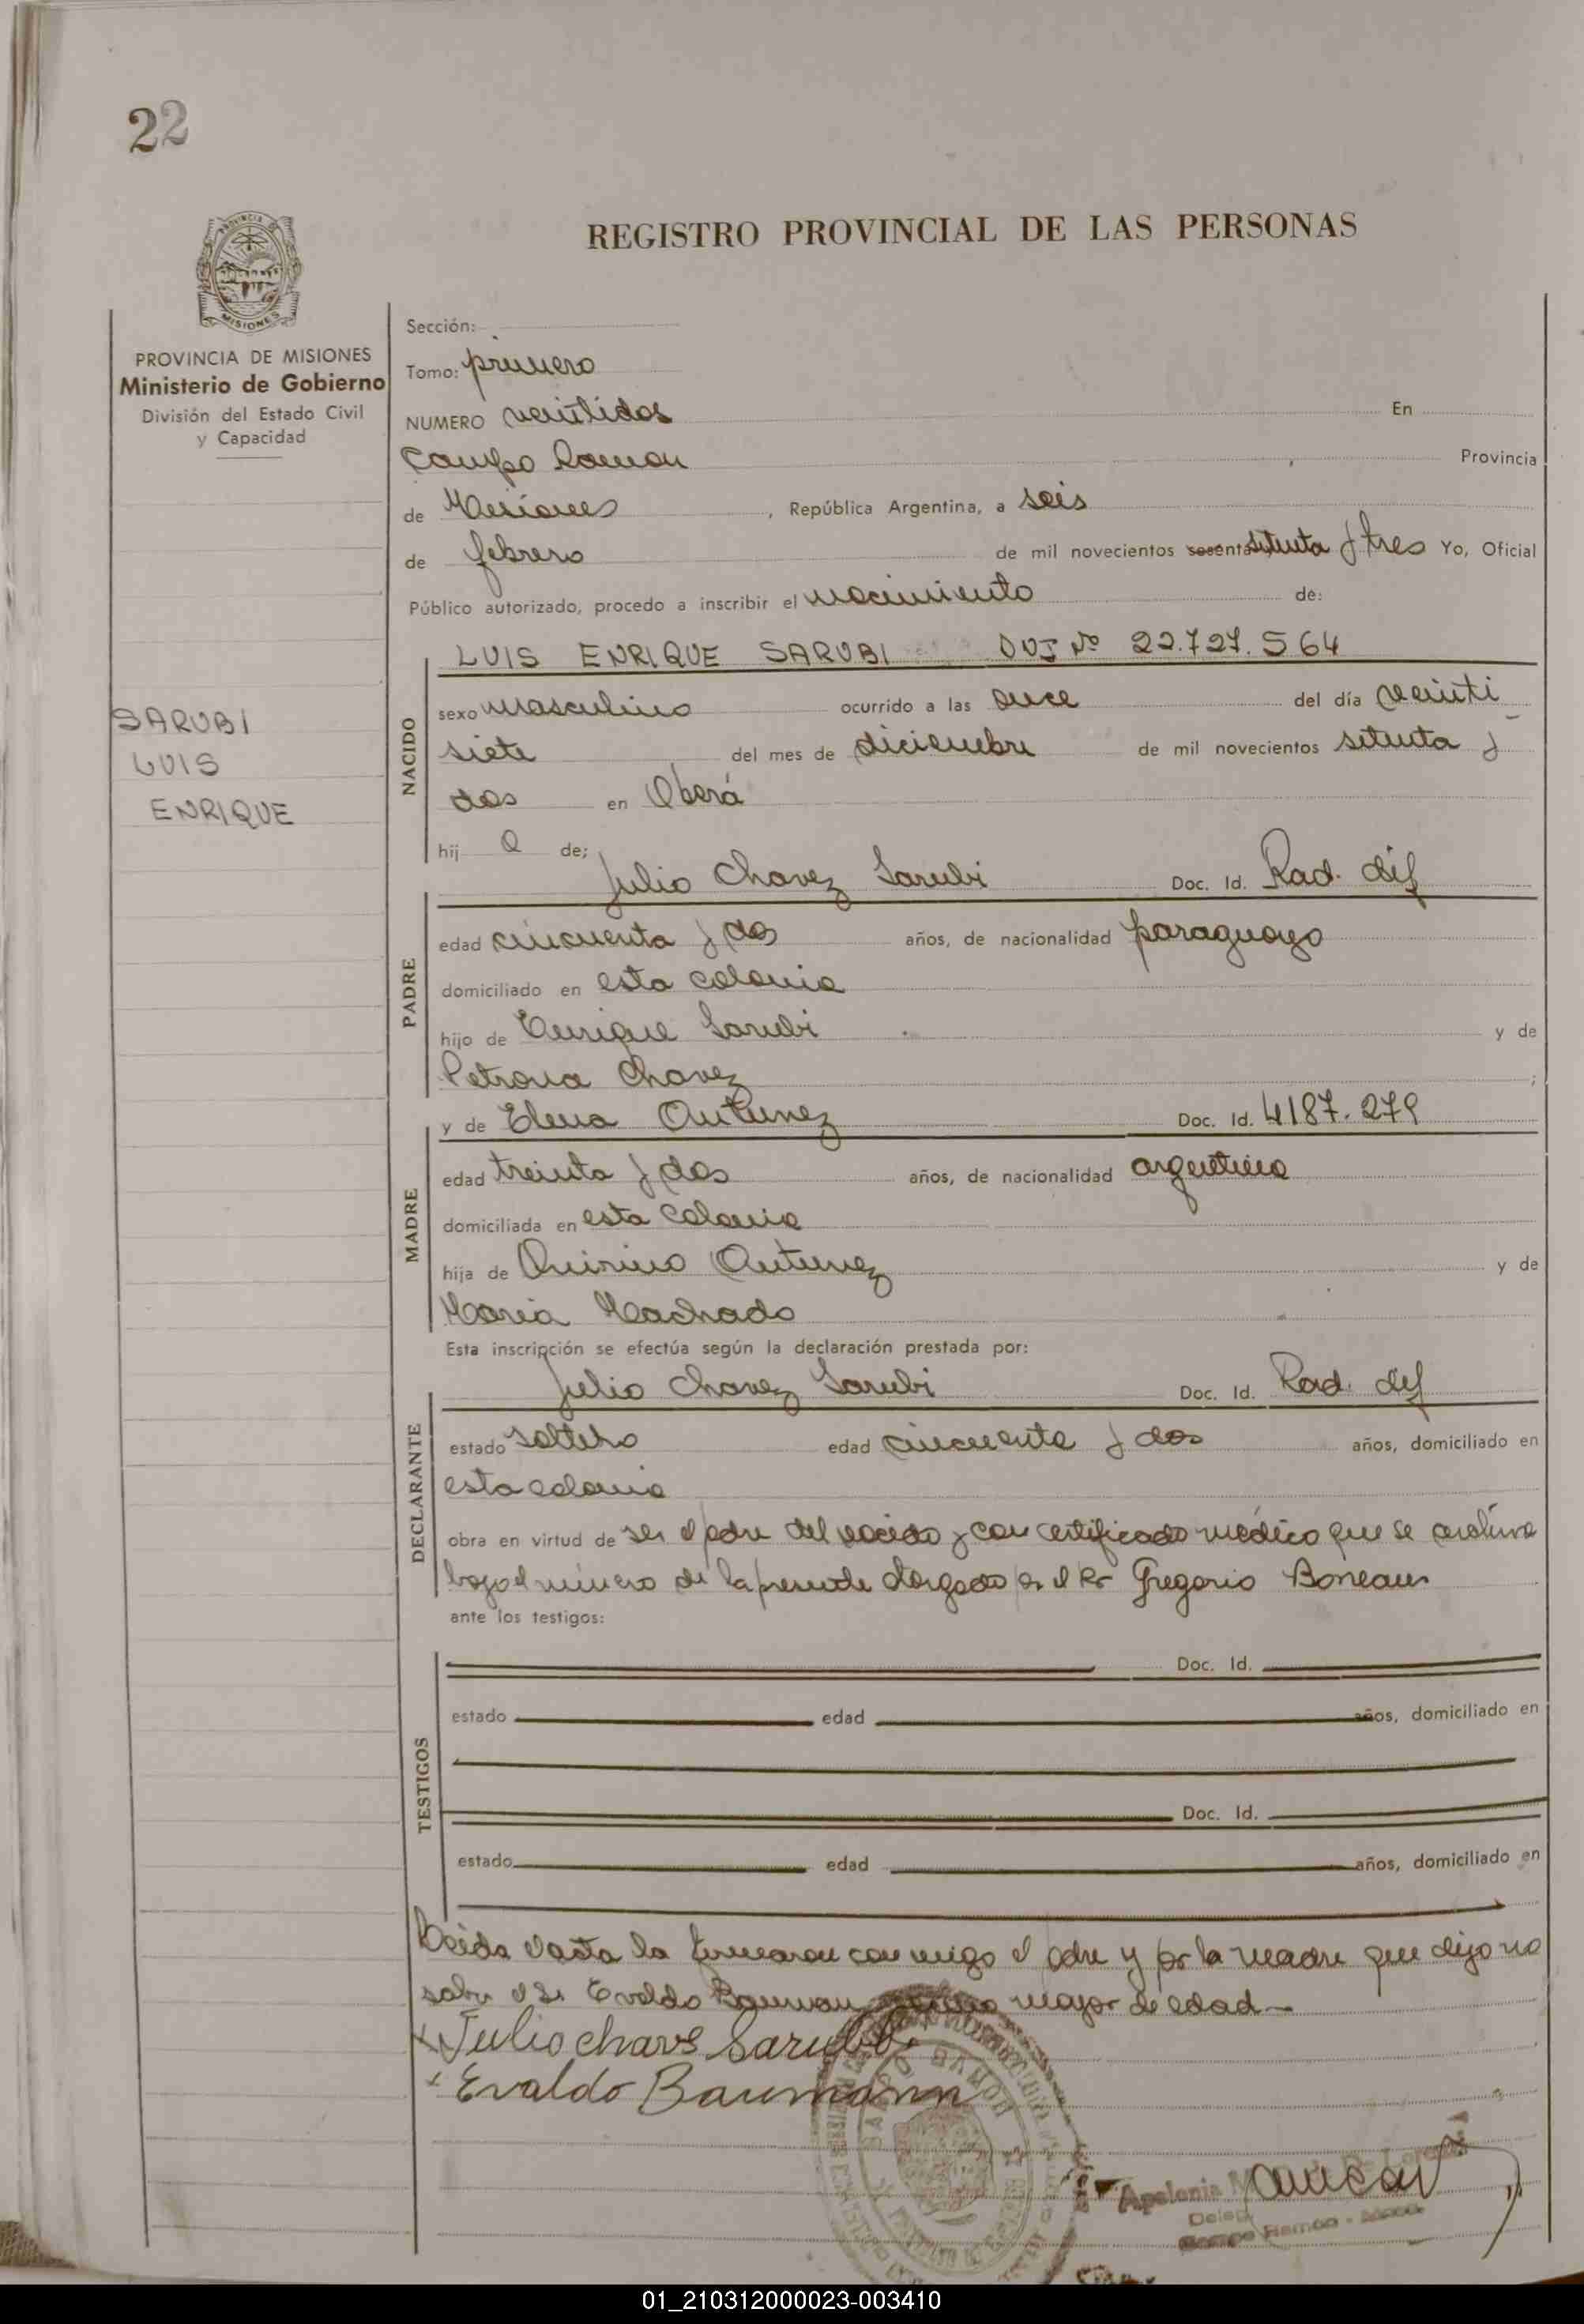 22
REGISTRO PROVINCIAL DE LAS PERSONAS
PROVINCIA
MISIONES
PROVINCIA DE MISIONES
Ministerio de Gobierno
División del Estado Civil
y Capacidad
SARUBI
LUIS
ENRIQUE
Sección:
Tomo: primero
NUMERO veintidos En
Campo Ramon Provincia
de Misiones, República Argentina, a seis
de febrero de mil novecientos sesenta setenta y tres Yo, Oficial
Público autorizado, procedo a inscribir el nacimiento de:
LUIS ENRIQUE SARUBI DUI Nº 22.727.564
NACIDO
sexo masculino ocurrido a las once del día veinti
siete del mes de diciembre de mil novecientos setenta y
dos en Oberá
hij o de;
Julio Chavez Sarubi Doc. Id. Rad. dif
PADRE
edad cincuenta y dos años, de nacionalidad paraguayo
domiciliado en esta colonia
hijo de Enrique Sarubi y de
Petrona Chavez ;
y de Elena Antunez Doc. Id. 4187.279
MADRE
edad treinta y dos años, de nacionalidad argentina
domiciliada en esta colonia
hija de Quirino Antunez y de
Maria Machado
Esta inscripción se efectúa según la declaración prestada por:
Julio Chavez Sarubi Doc. Id. Rad. dif
DECLARANTE
estado soltero edad cincuenta y dos años, domiciliado en
esta colonia
obra en virtud de ser el padre del nacido y con certificado médico que se archiva
bajo el número de la presente otorgado por el Dr Gregorio
ante los testigos:
TESTIGOS
Doc. Id.
estado edad años, domiciliado en
Doc. Id.
estado edad años, domiciliado en
Leida esta la firmaron conmigo el padre y por la madre que dijo no
saber el Sr Evaldo Bauman mayor de edad
x Julio chave Sarubi
x Evaldo Baumann
Apolonia
Campo Ramon
01_210312000023-003410